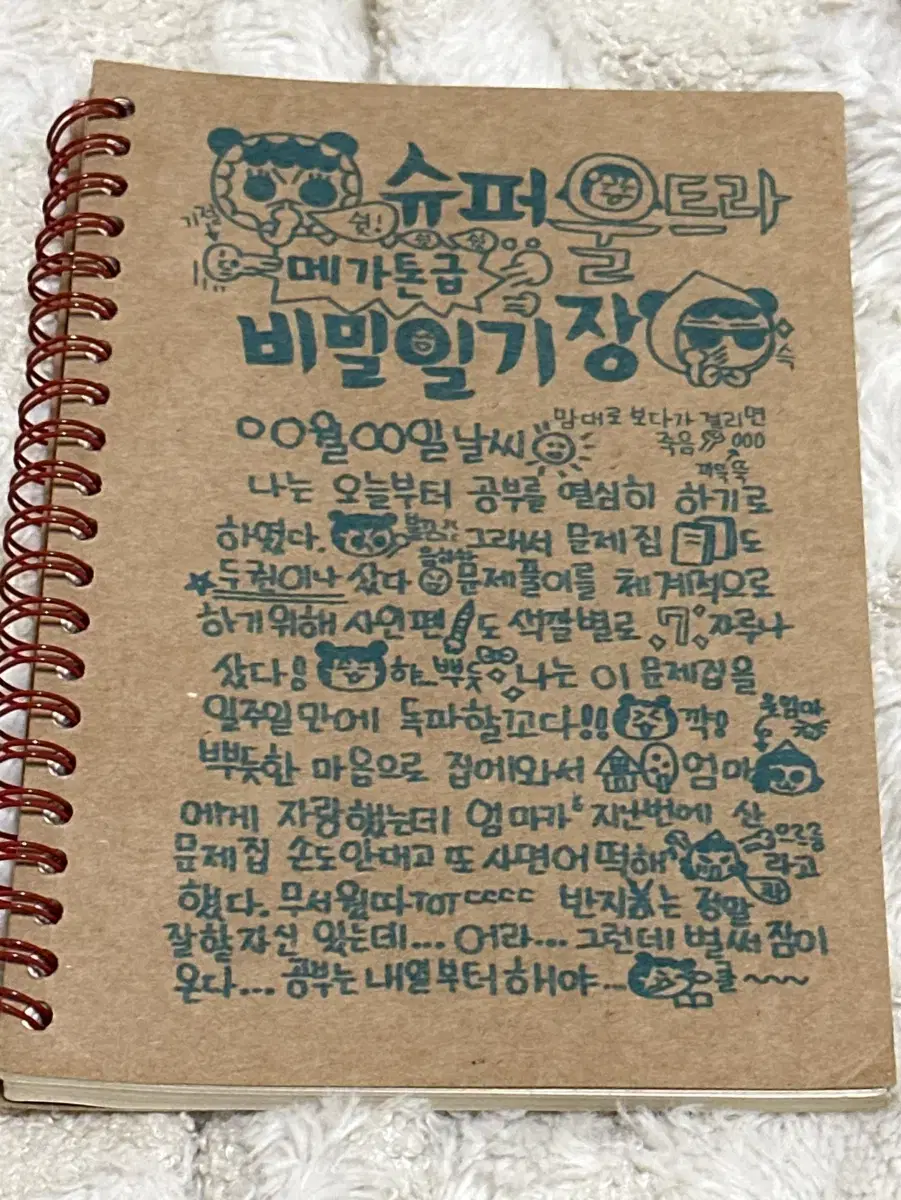 슈퍼울트라
쉿!
기절
메가톤급
비밀일기장
슥
OO월OO일 날씨
맘대로 보다가 걸리면
죽음
나는 오늘부터 공부를 열심히 하기로
하였다. 불끈 그래서 문제집 도
두권이나 샀다 문제풀이를 체계적으로
하기위해 사인펜 도 색깔별로 7 자루나
샀다! 하_뿌듯 나는 이 문제집을
일주일만에 독파할꼬다!! 꺅!
울엄마
뿌듯한 마음으로 집에와서 엄마
에게 자랑했는데 엄마가 지난번에 산
으르릉
문제집 손도안대고 또 사면어떡해 라고
했다. 무서웠따TOT ㄷㄷㄷㄷ 반지 는 정말
잘할자신 있는데... 어라... 그런데 벌써 잠이
온다... 공부는 내일부터 해야... 쿨~~~